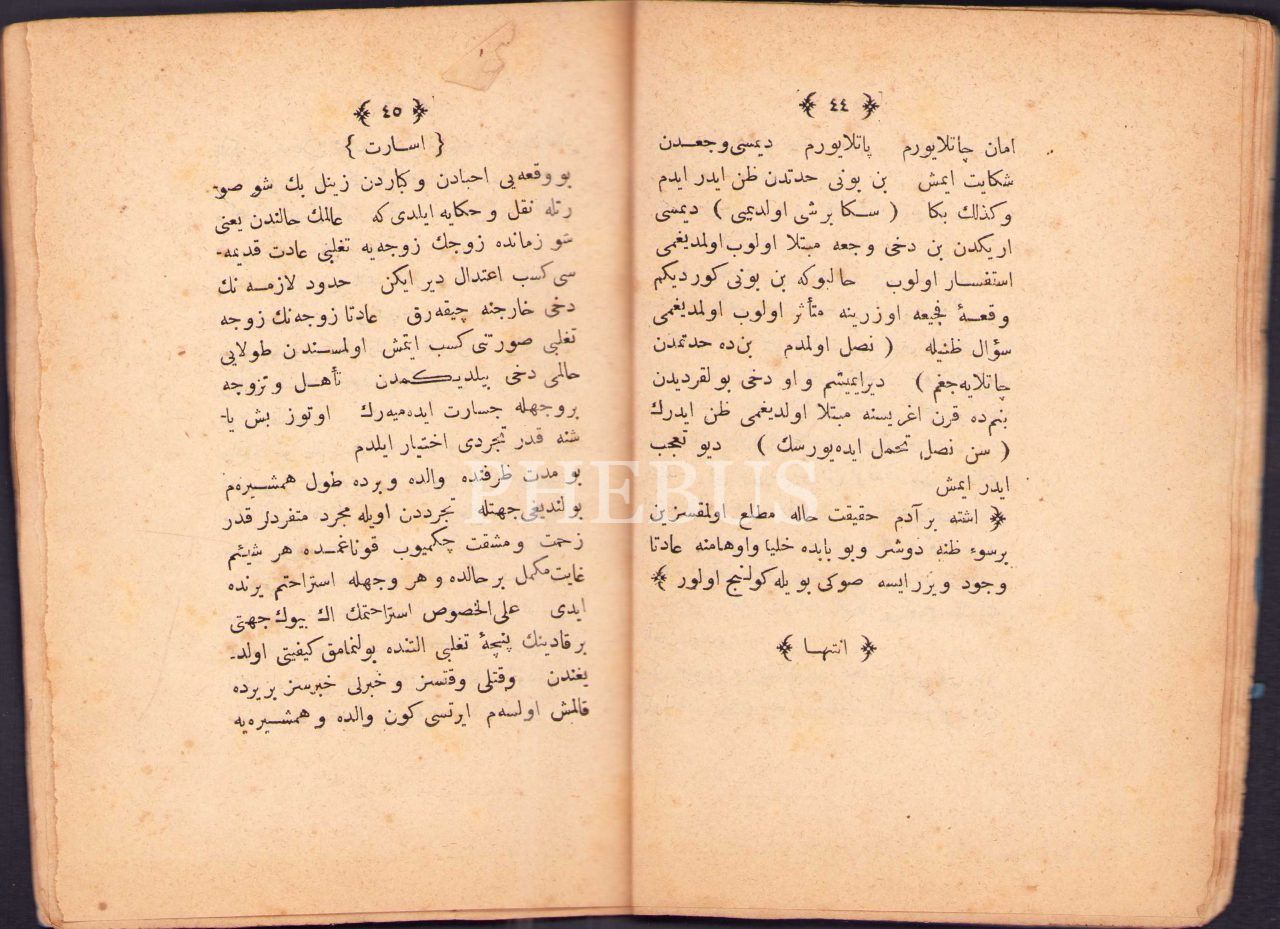 ٤٤
امان چاتلایورم پاتلایورم دیمسی وجعدن
شكایت ایمش بن بونی حدتدن ظن ایدر ایدم
وكذلك بكا ( سكا بر شی اولدیمی ) دیمسی
اریكدن بن دخی وجعه مبتلا اولوب اولمدیغمی
استفسار اولوب حالبوكه بن بونی كوردیكم
وقعهٔ فجیعه اوزرینه متأثر اولوب اولمدیغمی
سؤال ظنیله ( نصل اولمدم بن‌ده حدتمدن
چاتلایه‌جغم ) دیرایمیشم و او دخی بو لقردیدن
بنم‌ده قرن اغریسنه مبتلا اولدیغمی ظن ایدرك
( سن نصل تحمل ایده‌یورسك ) دیو تعجب
ایدر ایمش
اشته بر آدم حقیقت حاله مطلع اولمقسزین
بر سوء ظنه دوشر و بو بابده خلیا و اوهامنه عادتا
وجود ویرر ایسه صوكی بویله كولنج اولور
انتها
٤٥
{ اسارت }
بو وقعه‌یی احبادن و كباردن زینل بك شو صو-
رتله نقل و حكایه ایلدی كه عالمك حالندن یعنی
شو زمانده زوجك زوجه‌یه تغلبی عادت قدیمه-
سی كسب اعتدال دیر ایكن حدود لازمه نك
دخی خارجنه چیقه‌رق عادتا زوجه‌نك زوجه
تغلبی صورتنی كسب ایتمش اولمسندن طولایی
حالمی دخی بیلدیكمدن تأهل و تزوجه
بر وجهله جسارت ایده‌میه‌رك اوتوز بش یا-
شنه قدر تجردی اختیار ایلدم
بو مدت ظرفنده والده و برده طول همشیره‌م
بولندیغی جهتله تجرددن اویله مجرد متفردلر قدر
زحمت و مشقت چكمیوب قوناغمده هر شیئم
غایت مكمل بر حالده و هر وجهله استراحتم یرنده
ایدی علی‌الخصوص استراحتمك اك بیوك جهتی
بر قادینك پنچهٔ تغلبی التنده بولنمامق كیفیتی اولد-
یغندن وقتلی وقتسز و خبرلی خبرسز بر یرده
قالمش اولسه‌م ایرتسی كون والده و همشیره‌یه
PHEBUS